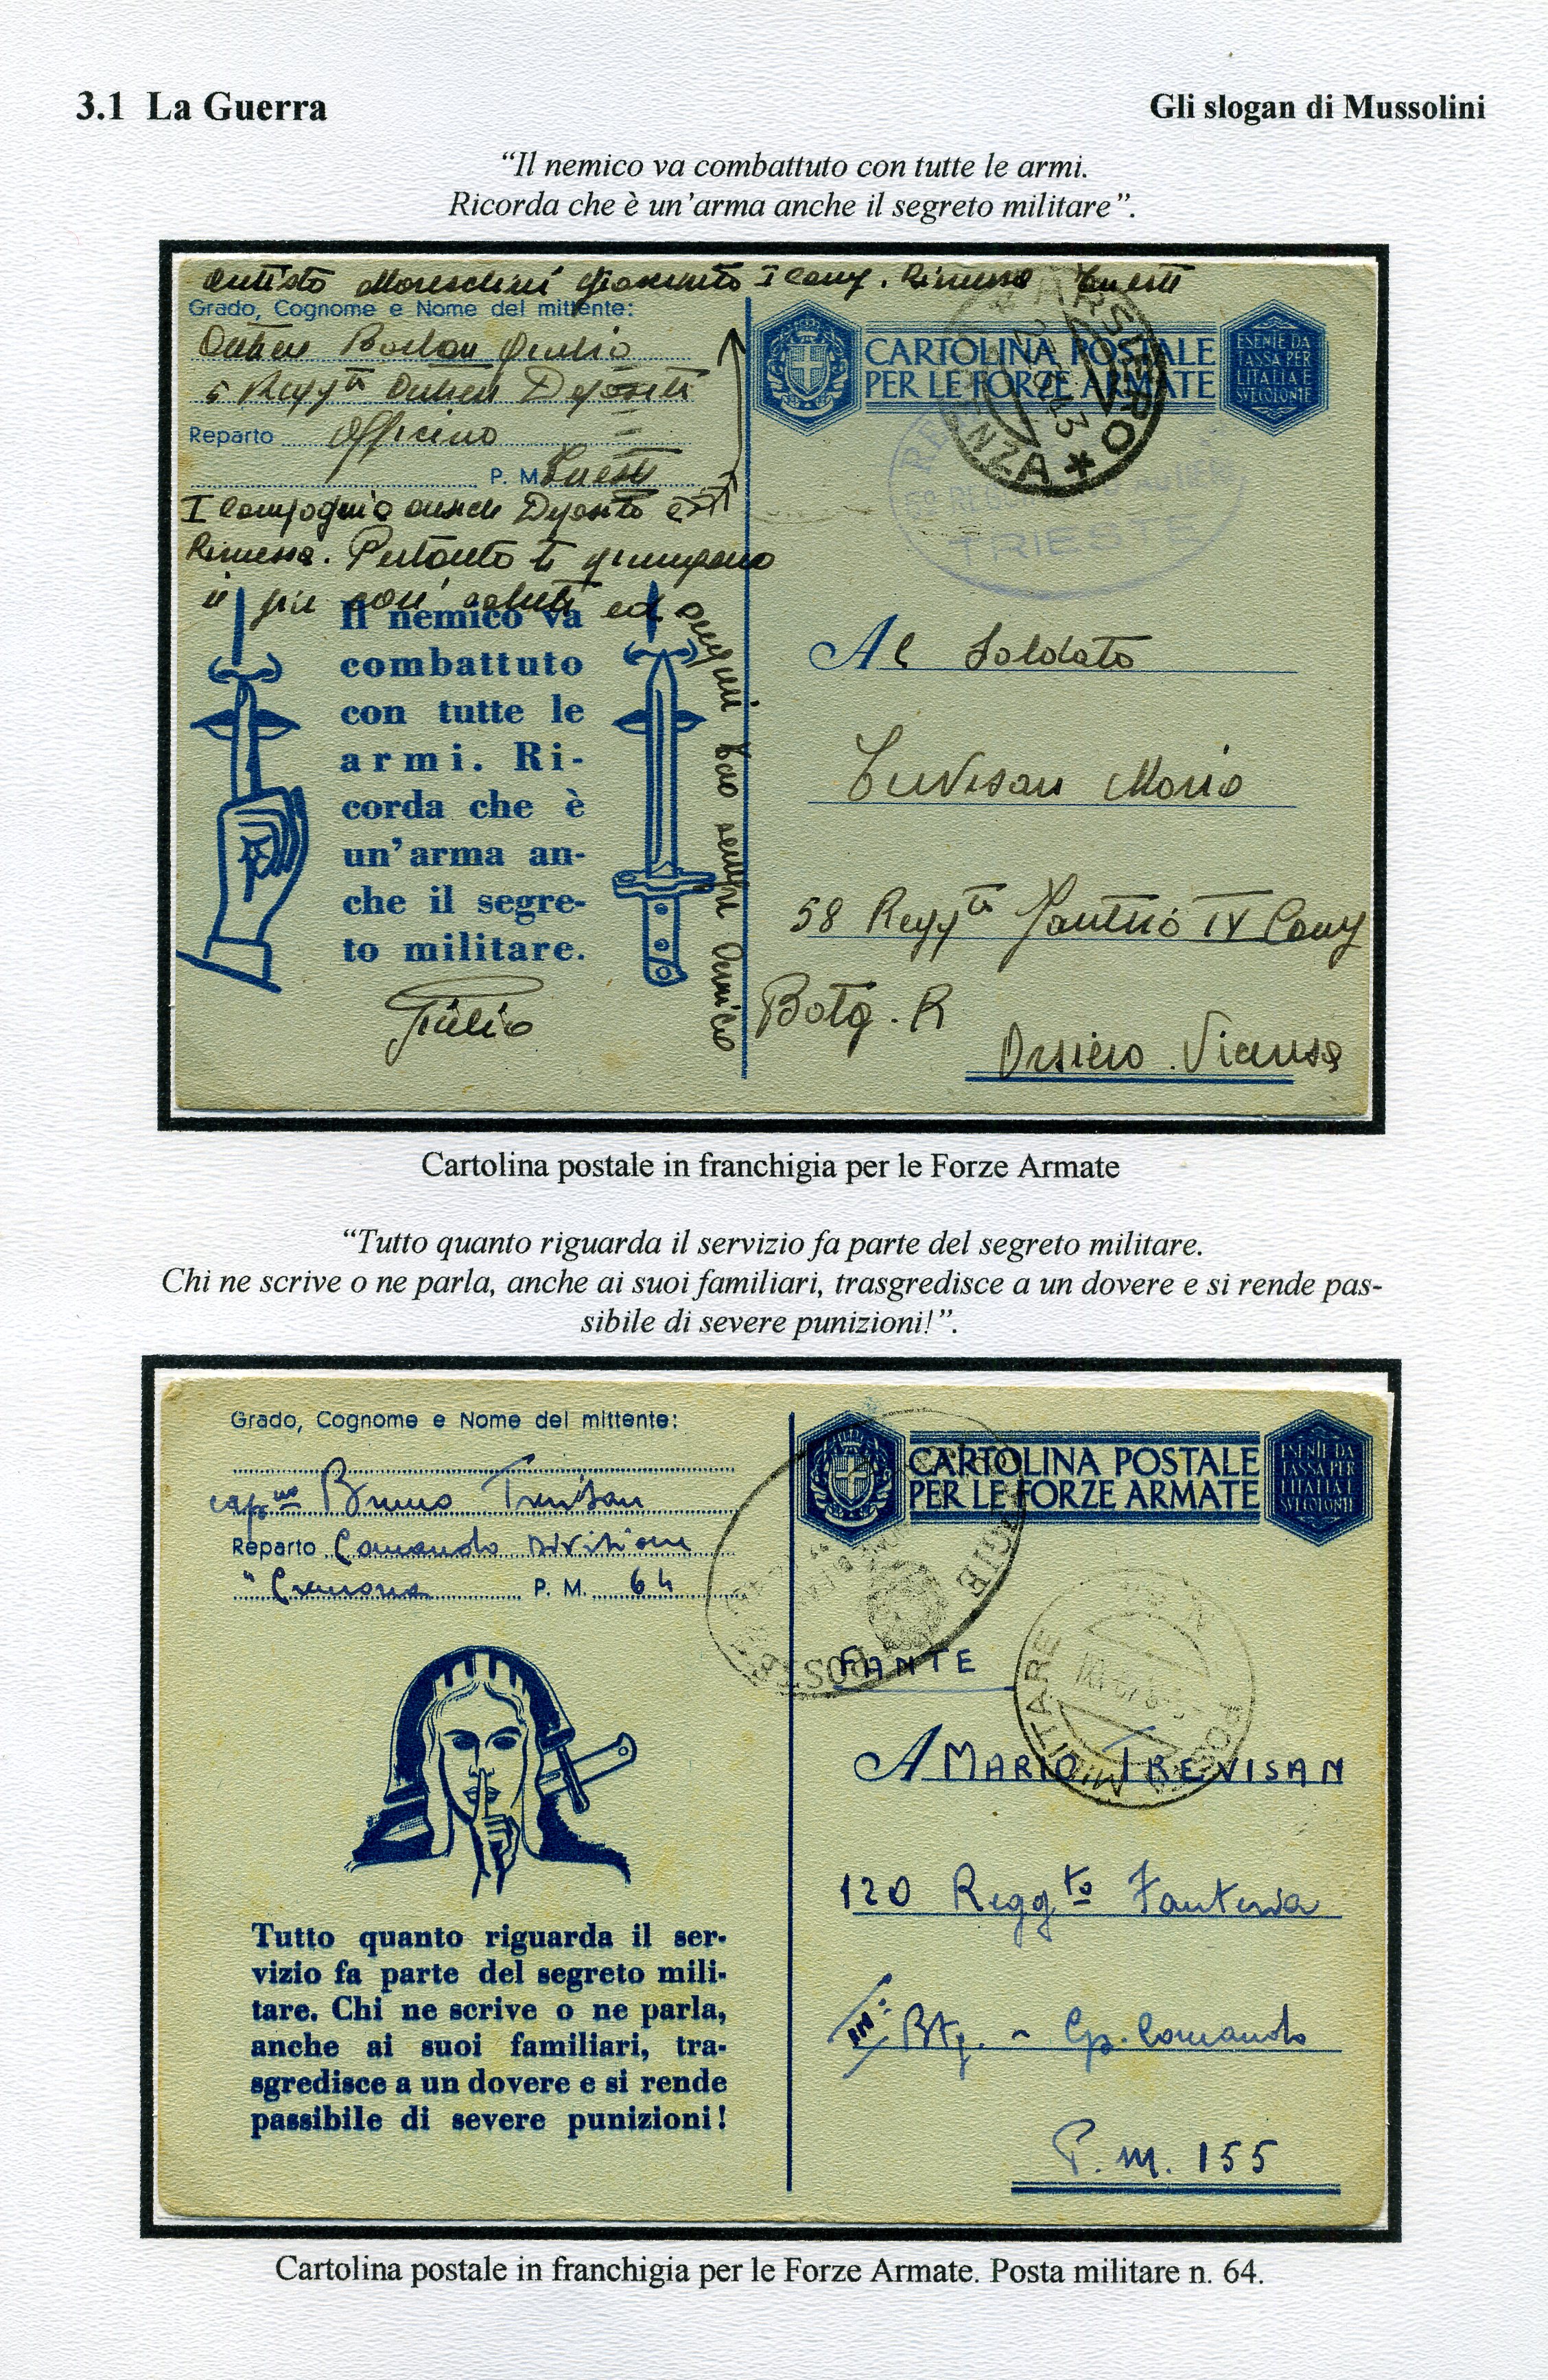 3.1 La Guerra
Gli slogan di Mussolini
“Il nemico va combattuto con tutte le armi.
Ricorda che è un’arma anche il segreto militare”.
Grado, Cognome e Nome del mittente:
Giulio
5 Regg.to Deposito
Reparto Officina
P. M. Trieste
I Compagnia Deposito e
Rimessa. Pertanto ti giungano
i più cari saluti ed auguri tuo sempre Amico
Il nemico va
combattuto
con tutte le
armi. Ri-
corda che è
un’arma an-
che il segre-
to militare.
Giulio
CARTOLINA POSTALE
PER LE FORZE ARMATE
ESENTE DA
TASSA PER
L'ITALIA E
SUE COLONIE
ARSIERO
VICENZA
TRIESTE
Al Soldato
Trevisan Mario
58 Regg.to Fanteria IV Comp
Batg. R
Arsiero . Vicenza
Cartolina postale in franchigia per le Forze Armate
“Tutto quanto riguarda il servizio fa parte del segreto militare.
Chi ne scrive o ne parla, anche ai suoi familiari, trasgredisce a un dovere e si rende pas-
sibile di severe punizioni!”.
Grado, Cognome e Nome del mittente:
cap.no Bruno Trevisan
Reparto Comando Divisione
"Cremona P. M. 64
Tutto quanto riguarda il ser-
vizio fa parte del segreto mili-
tare. Chi ne scrive o ne parla,
anche ai suoi familiari, tra-
sgredisce a un dovere e si rende
passibile di severe punizioni!
CARTOLINA POSTALE
PER LE FORZE ARMATE
ESENTE DA
TASSA PER
L'ITALIA E
SUE COLONIE
POSTA MILITARE
FANTE
A MARIO TREVISAN
120 Regg.to Fanteria
III° Btg. - Cp. Comando
P.M. 155
Cartolina postale in franchigia per le Forze Armate. Posta militare n. 64.